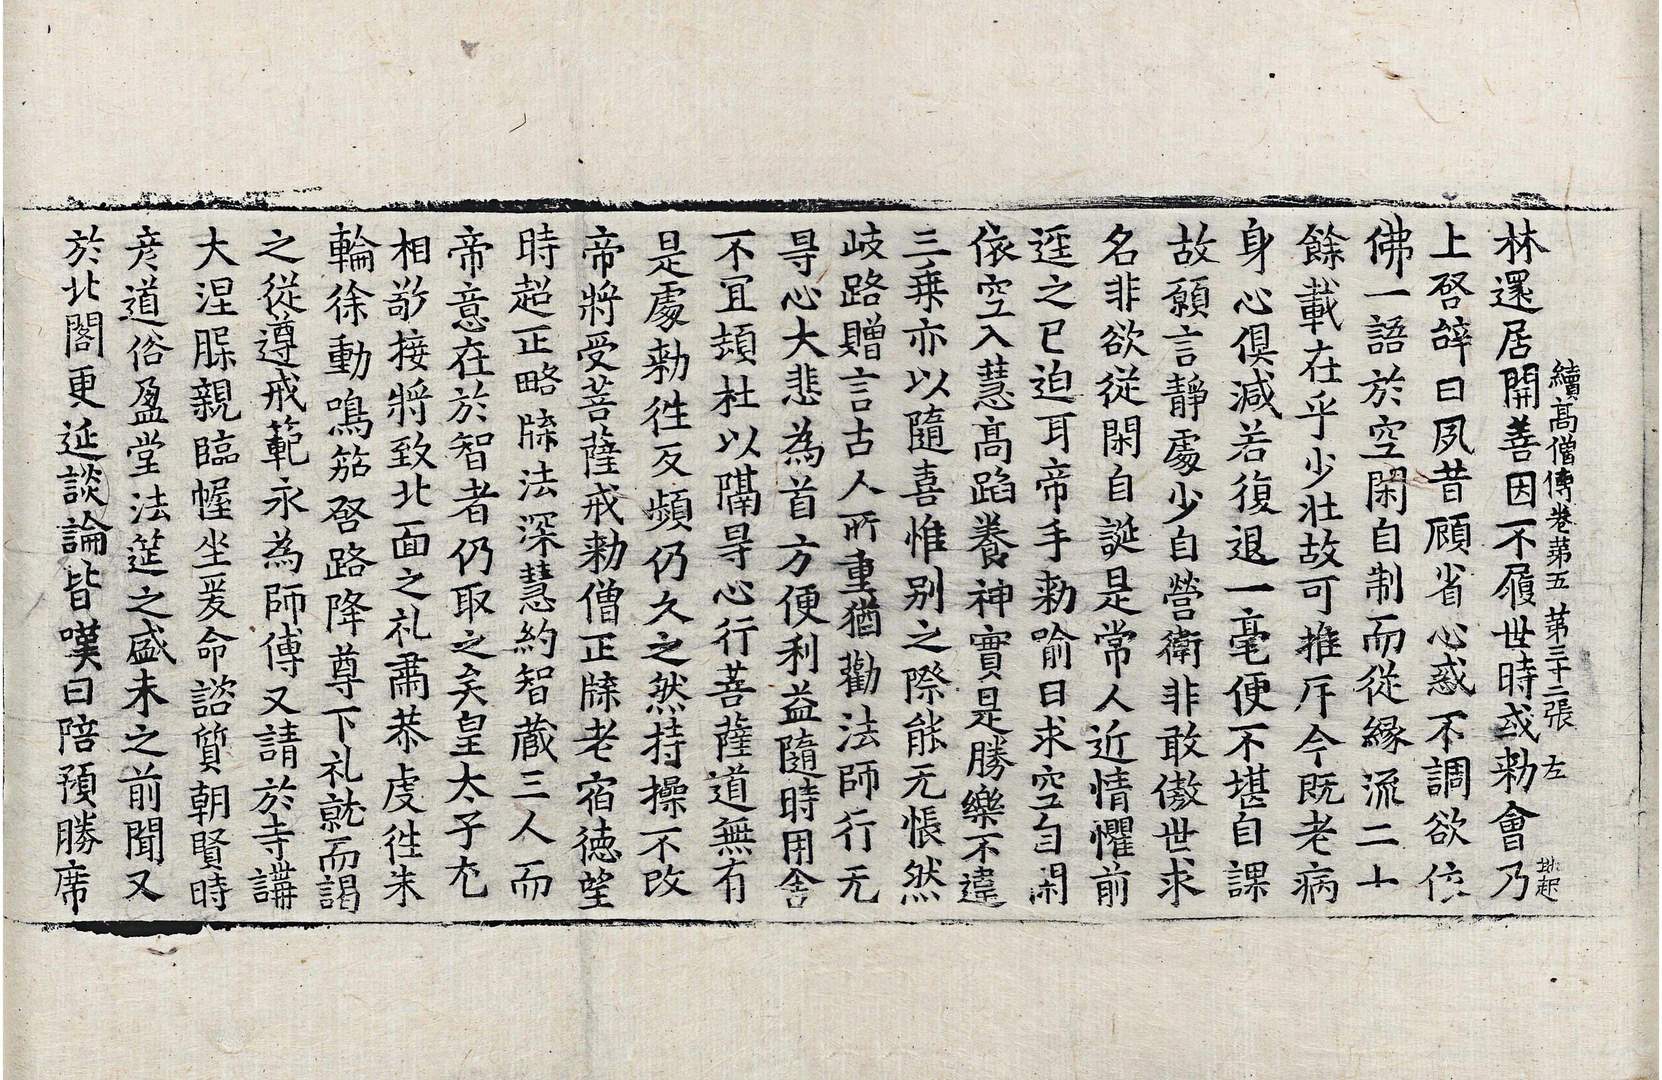 續高僧傳卷苐五　苐三十二張　左
林還居開善因不履世時或勑會乃
上啓辝曰夙昔顧省心惑不調欲依
佛一語於空閑自制而從緣流二十
餘載在乎少壯故可推斥今既老病
身心俱減若復退一毫便不堪自課
故願言靜處少自營衛非敢傲世求
名非欲從閑自誕是常人近情懼前
逕之已迫耳帝手勑喻曰求空自閑
依空入慧高蹈養神實是勝樂不違
三乗亦以隨喜惟别之際能无悵然
歧路贈言古人所重猶勸法師行无
㝵心大悲為首方便利益隨時用舍
不冝頓杜以隔㝵心行菩薩道無有
是處勑徃反頻仍久之然持操不改
帝將受菩薩戒勑僧正牒老宿德望
時超正略牒法深慧約智蔵三人而
帝意在於智者仍取之矣皇太子尤
相敬接將致北面之礼肅恭虔徃朱
輪徐動鳴笳啓路降尊下礼就而謁
之從遵戒範永為師傅又請於寺講
大涅脲親臨幄坐爰命諮質朝賢時
彦道俗盈堂法筵之盛未之前聞又
於北閣更延談論皆嘆曰陪預勝席